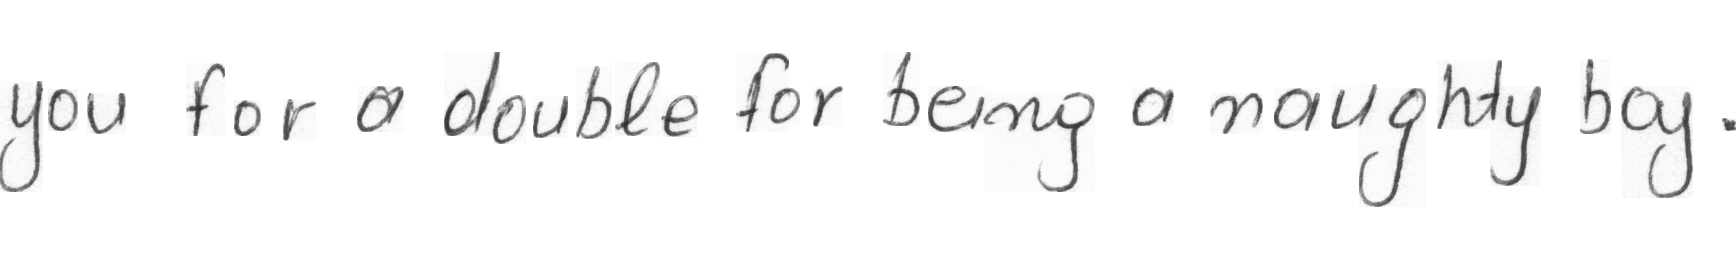 you for a double for being a naughty boy.